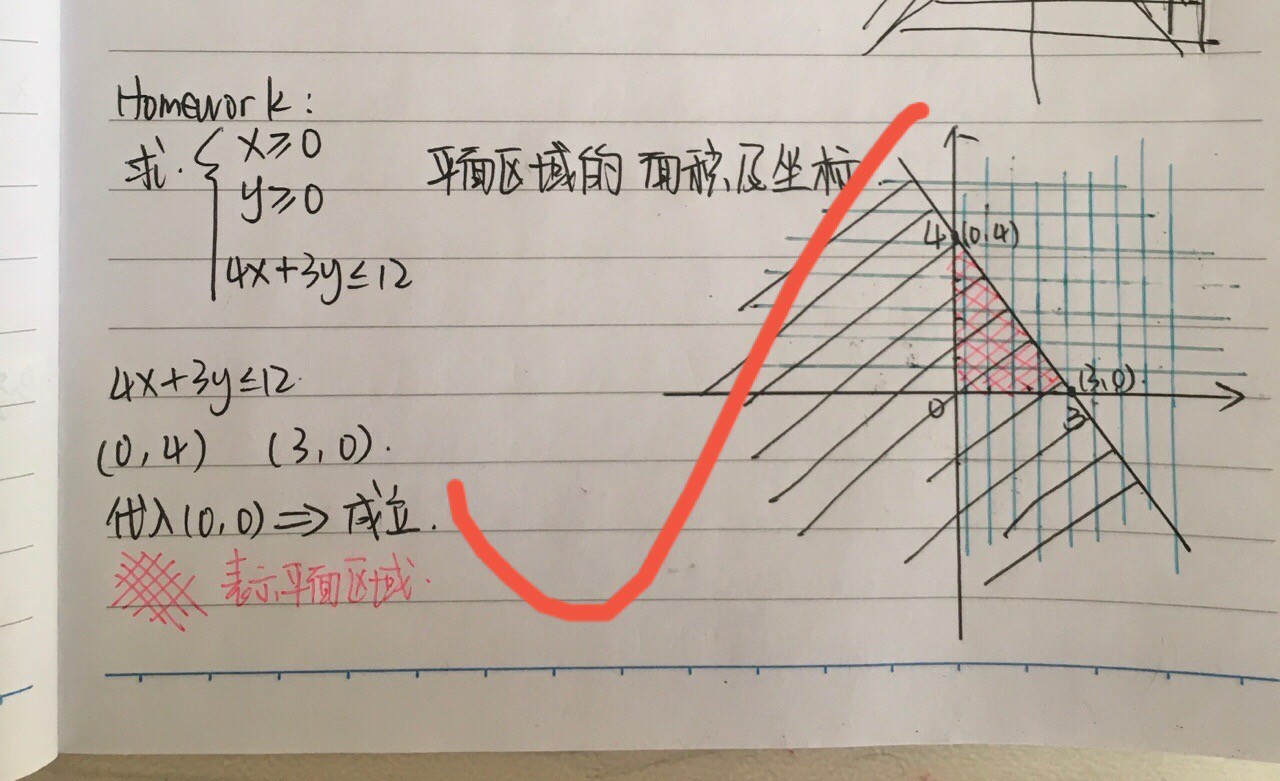 Homework:
求. { x≥0
y≥0
4x+3y≤12
平面区域的面积及坐标
4x+3y≤12.
(0,4) (3,0).
代入(0,0) => 成立.
表示平面区域.
4 (0,4)
(3,0).
0
3